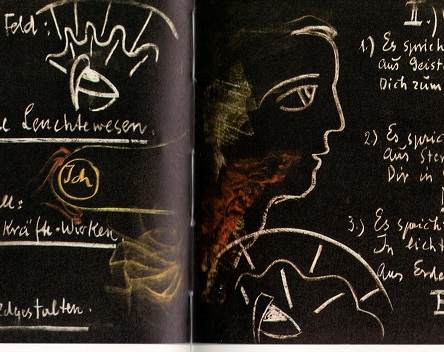 Feld:
Leuchtewesen.
Ich
Kräfte-Wirken,
II.)
1.) Es sprich
aus Geist
Dich zum
2.) Es spric
Aus
Dir in
3.) Es spricht
In licht
Aus Erde